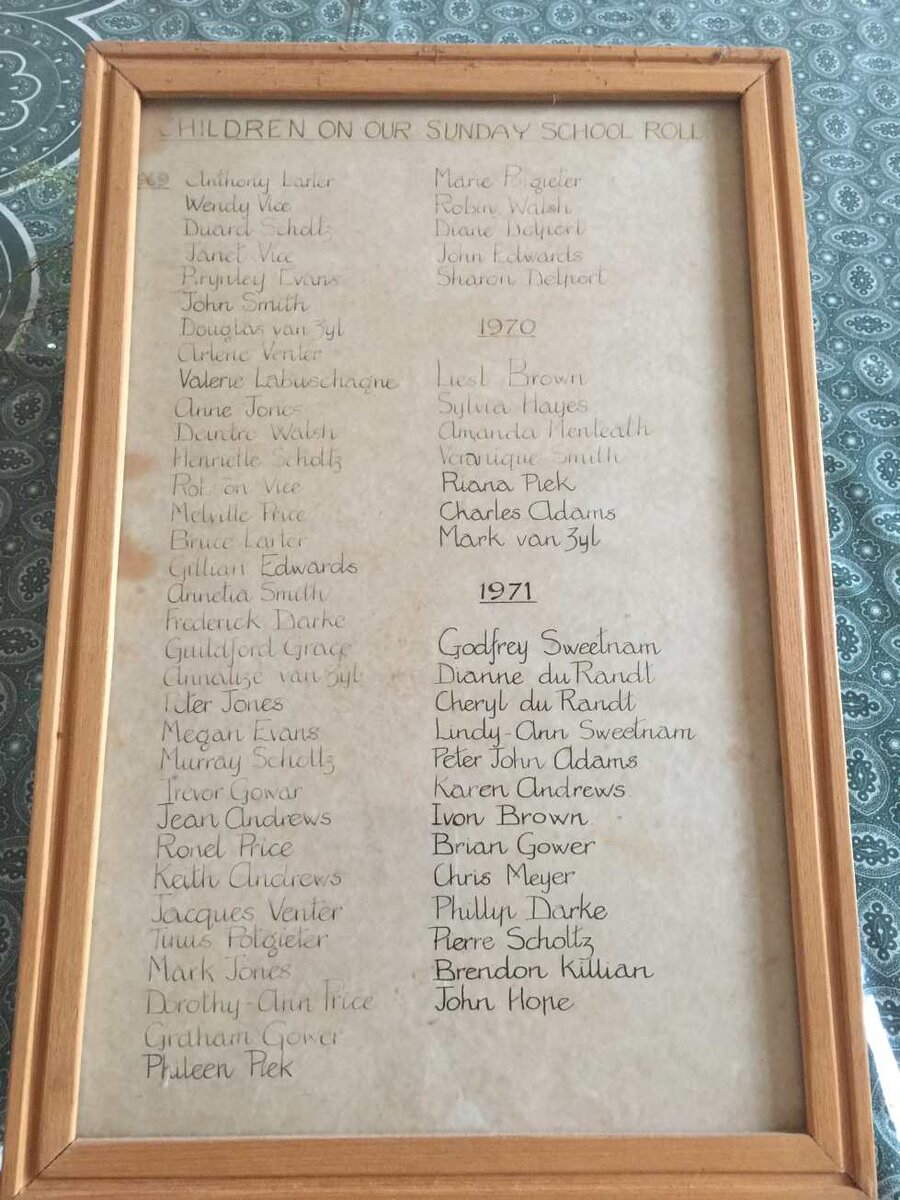 CHILDREN ON OUR SUNDAY SCHOOL ROLL
1969 Anthony Larter
Wendy Vice
Duard Scholtz
Janet Vice
Brynley Evans
John Smith
Douglas van Zyl
Arlene Venter
Valerie Labuschagne
Anne Jones
Deirdre Walsh
Henriette Scholtz
Robson Vice
Melville Price
Bruce Larter
Gillian Edwards
Annetia Smith
Frederick Darke
Guildford Grace
Annalize van Zyl
Peter Jones
Megan Evans
Murray Scholtz
Trevor Gowar
Jean Andrews
Ronel Price
Keith Andrews
Jacques Venter
Potgieter
Mark Jones
Dorothy-Ann Price
Graham Gower
Phileen Piek
Marie Potgieter
Robin Walsh
Diane Delport
John Edwards
Sharon Delport
1970
Liesl Brown
Sylvia Hayes
Amanda Menteath
Veronique Smith
Riana Piek
Charles Adams
Mark van Zyl
1971
Godfrey Sweetnam
Dianne du Randt
Cheryl du Randt
Lindy-Ann Sweetnam
Peter John Adams
Karen Andrews
Ivon Brown
Brian Gower
Chris Meyer
Phillyp Darke
Pierre Scholtz
Brendon Killian
John Hope